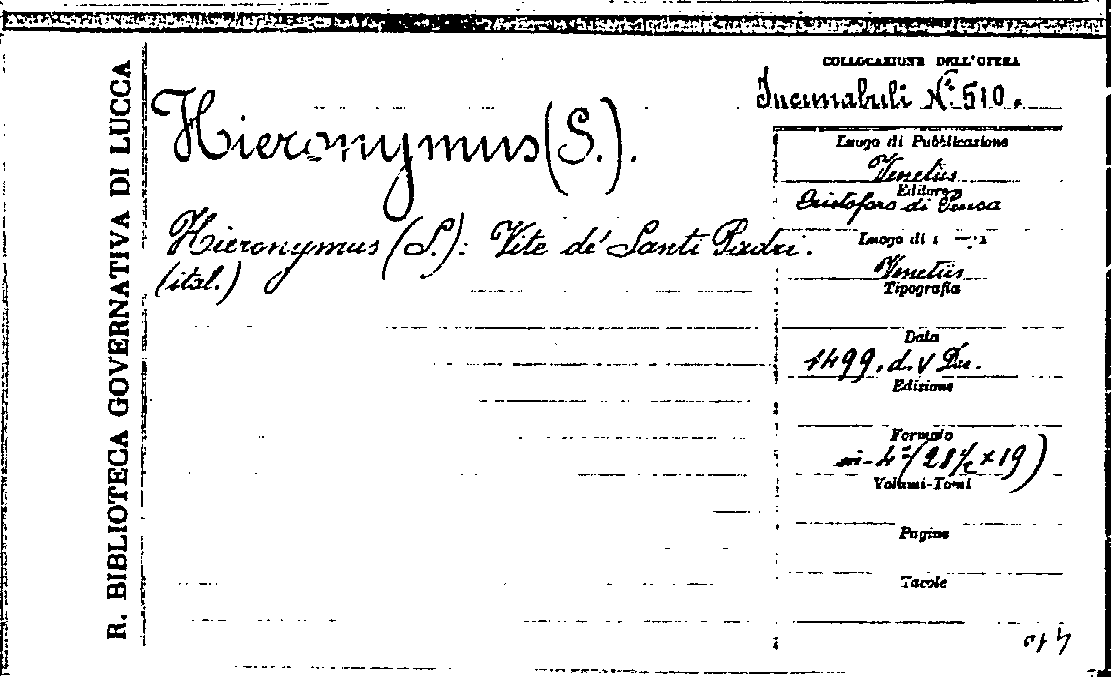 R. BIBLIOTECA GOVERNATIVA DI LUCCA
Hieronymus (S.).
Hieronymus (S.): Vite de' Santi Padri.
(ital.)
COLLOCAZIONE DELL'OPERA
Incunabuli No. 510.
Luogo di Pubblicazione
Venetiis
Editore
Cristoforo di Pensa
Luogo di
Venetiis
Tipografia
Data
1499. d. V Dec.
Edizione
Formato
in-4° (28½ × 19)
Volumi-Tomi
Pagine
Tavole